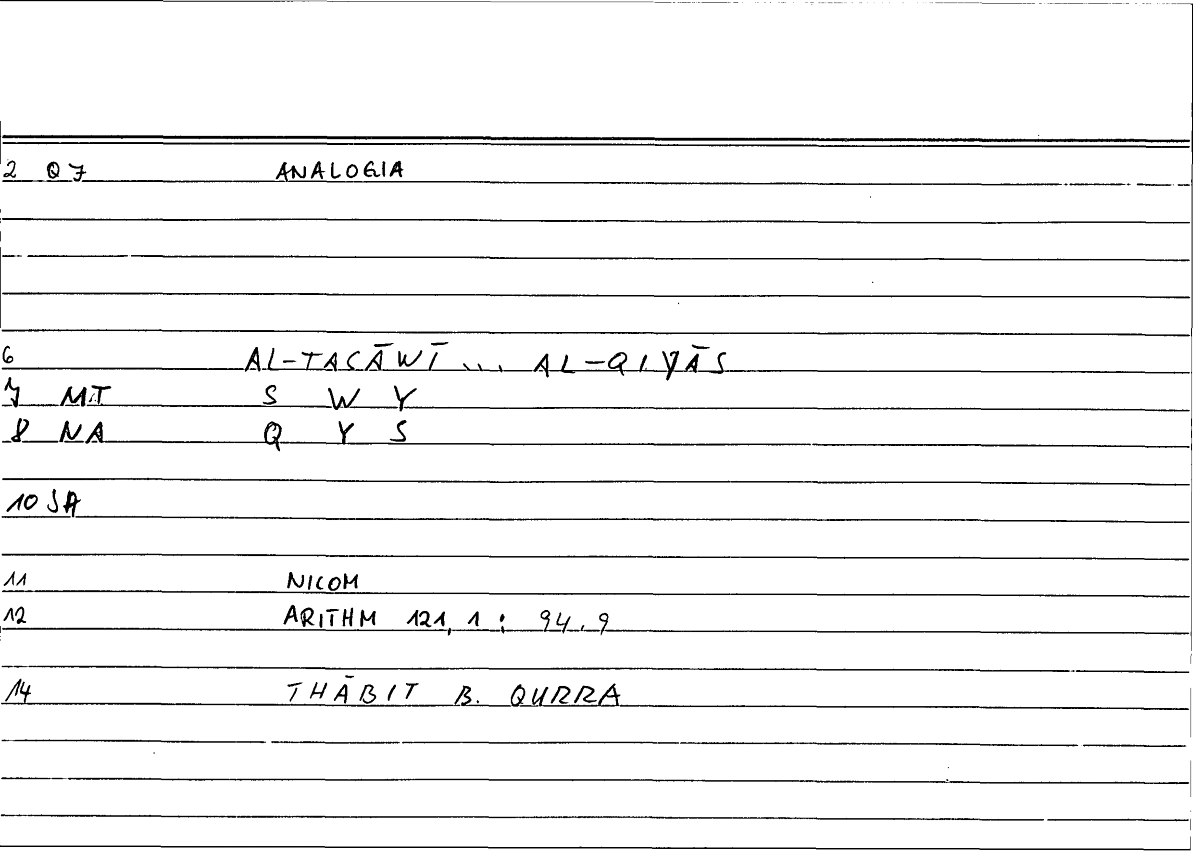 2 Q7 ANALOGIA
6 AL-TASĀWĪ ... AL-QIYĀS
7 MT S W Y
8 NA Q Y S
10 SA
11 NICOM
12 ARITHM 121, 1 : 94.9
14 THĀBIT B. QURRA